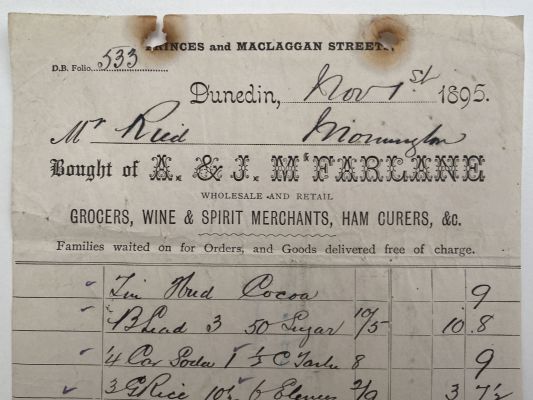 PRINCES and MACLAGGAN STREETS.
D.B. Folio 533
Dunedin, Nov 1st 1895.
Mr Reid Mornington
Bought of A. & J. McFARLANE
WHOLESALE AND RETAIL
GROCERS, WINE & SPIRIT MERCHANTS, HAM CURERS, &c.
Families waited on for Orders, and Goods delivered free of charge.
Tin Cocoa 9
3 50 Sugar 10/5 10.8
4 Car Soda 1 ½ C Tartar 8 9
3 G Rice 10½ 6 2/9 3 7½